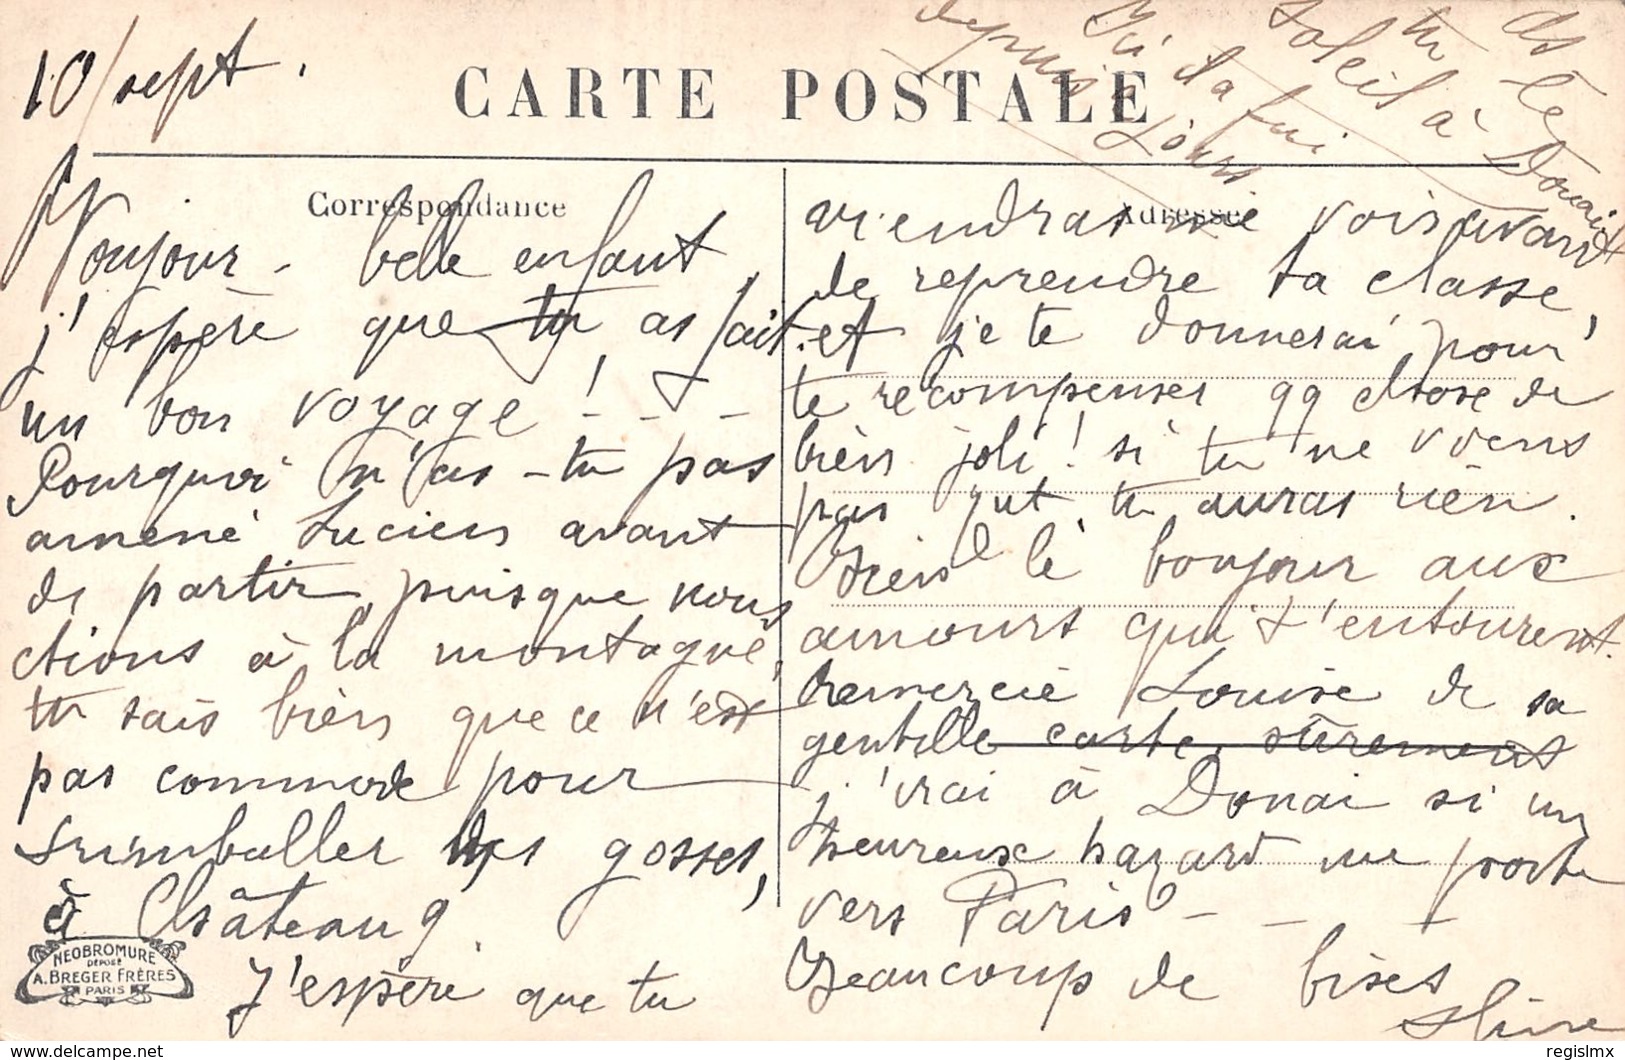 10/sept.
CARTE POSTALE
Correspondance
Adresse
Bonjour - belle enfant,
j'espère que tu as fait
un bon voyage ! - - -
Pourquoi n'as-tu pas
amené Lucien avant
de partir, puisque nous
étions à la montagne,
tu sais bien que ce n'est
pas commode pour
trimballer des gosses,
à Château g.
J'espère que tu
viendras me voir avant
de reprendre ta classe,
et je te donnerai pour
te recompenser qq chose de
bien joli ! si tu ne viens
pas zut tu auras rien.
Bien le bonjour aux
amours qui t'entourent.
Remercie Louise de sa
gentille carte, sûrement
j'irai à Douai si un
heureux hazard me porte
vers Paris - - -
Beaucoup de bises
ds le
tu
soleil à Douai
Ici la
depuis
jours
NEOBROMURE
DÉPOSÉ
A. BREGER FRÈRES
PARIS
delcampe.net
regislmx